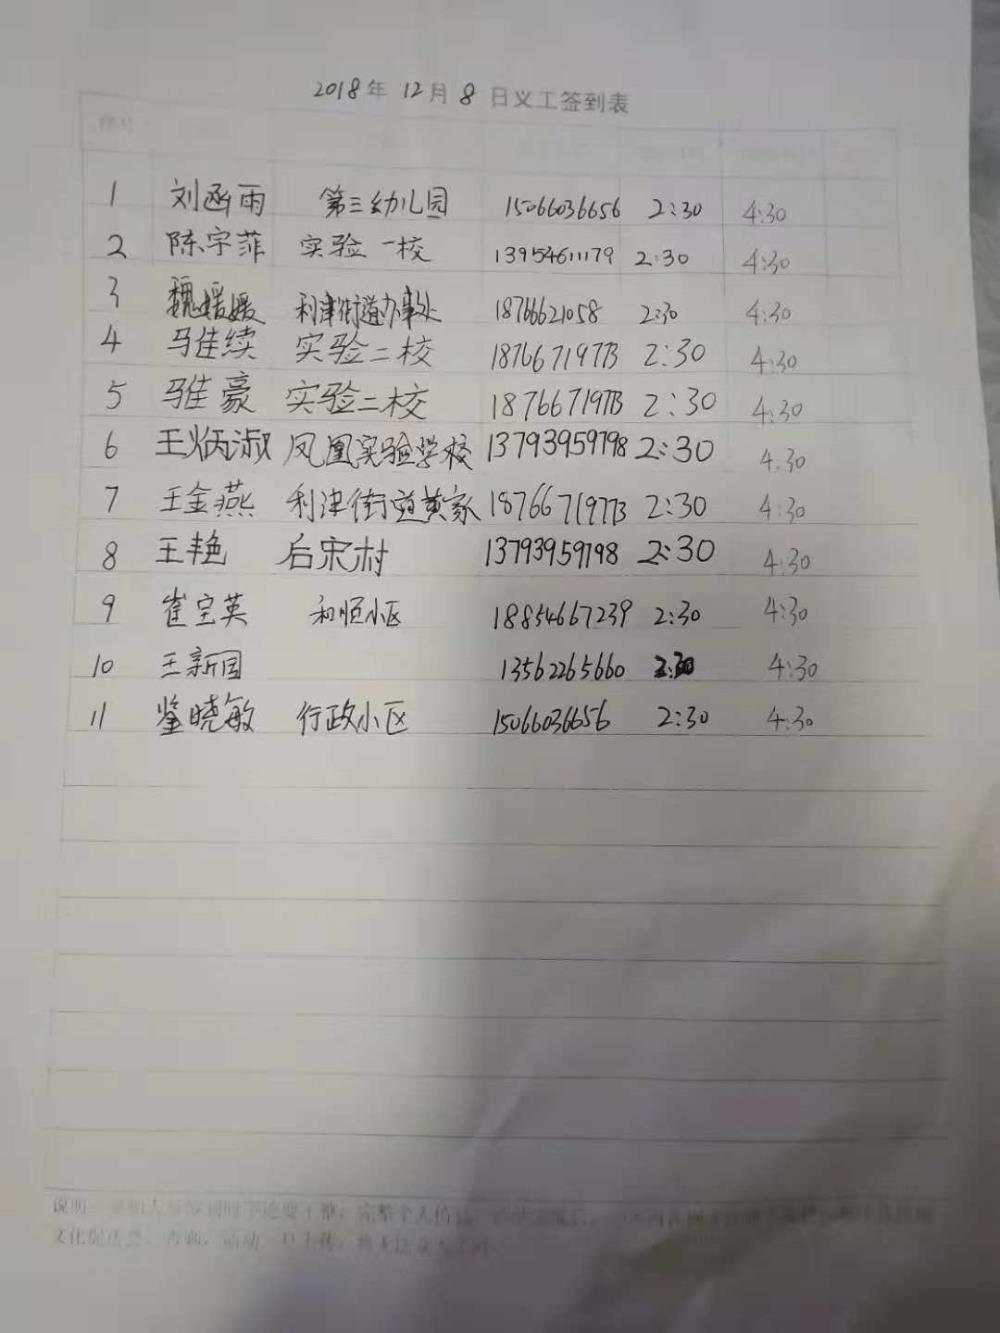 2018年 12月 8 日义工签到表
序号
1 刘函雨 第三幼儿园 15066036656 2:30 4:30
2 陈宇菲 实验一校 13954611179 2:30 4:30
3 魏媛媛 利津街道办事处 18766621058 2:30 4:30
4 马佳续 实验二校 18766719773 2:30 4:30
5 马佳豪 实验二校 18766719773 2:30 4:30
6 王炳淑 凤凰实验学校 13793959798 2:30 4:30
7 王金燕 利津街道黄家 18766719773 2:30 4:30
8 王艳 后宋村 13793959798 2:30 4:30
9 崔宝英 和恒小区 18854667239 2:30 4:30
10 王新国 13562265660 2:30 4:30
11 晓敏 行政小区 15066036656 2:30 4:30
说明: 完整个人信息